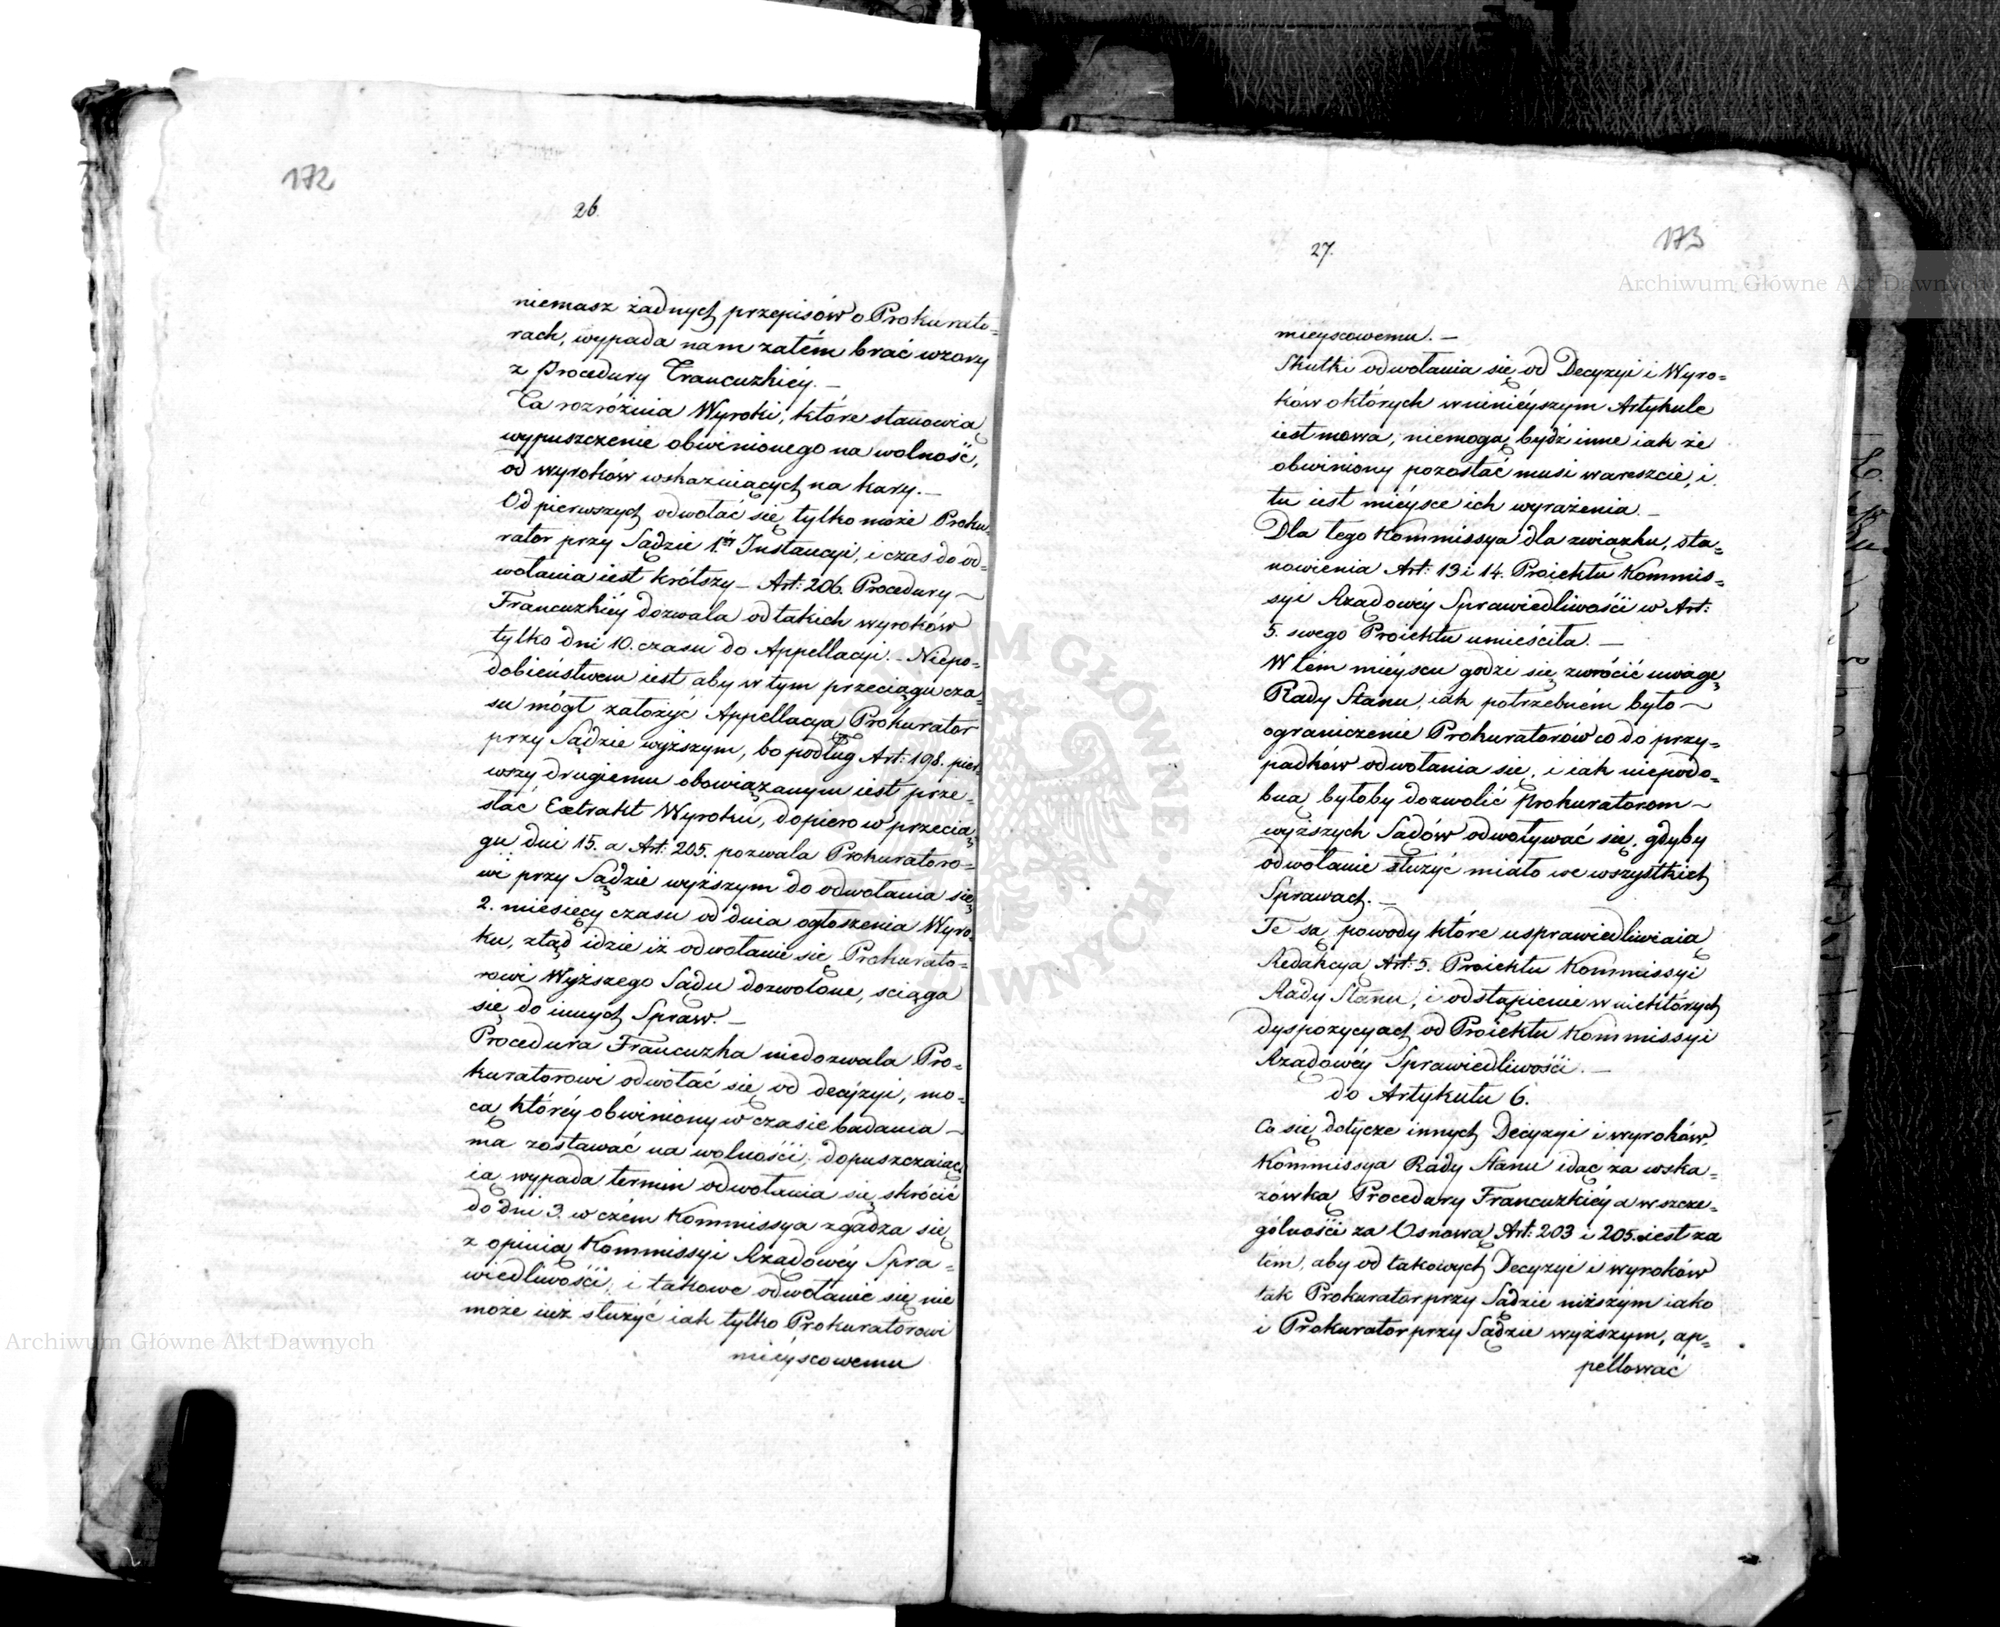 172
26.
niemasz żadnych przepisów o Prokurato=
rach, wypada nam zatém brać wzory
z Procedury Francuzkiéy. —
Ta rozróżnia Wyroki, które stanowią
wypuszczenie obwinionego na wolność,
od wyroków wskazuiących na kary. —
Od pierwszych odwołać się tylko może Proku=
rator przy Sądzie 1.éy Instancyi, i czas do od=
wołania iest krótszy — Art: 206. Procedury ~
Francuzkiéy dozwala od takich wyroków
tylko dni 10. czasu do Appellacyi. — Niepo=
dobieństwem iest aby w tym przeciągu cza=
su mógł założyć Appellacyą Prokurator
przy Sądzie wyższym, bo podług Art: 198. pier=
wszy drugiemu obowiązanym iest prze=
słać Extrakt Wyroku, dopiero w przecią
gu dni 15. a Art: 205. pozwala Prokuratoro=
wi przy Sądzie wyższym do odwołania się
2. miesięcy czasu od dnia ogłoszenia Wyro=
ku, ztąd idzie iż odwołanie się Prokurato=
rowi Wyższego Sądu dozwolone, sciąga
się do innych Spraw. —
Procedura Francuzka niedozwala Pro=
kuratorowi odwołać się od decyzyi, mo=
cą któréy obwiniony w czasie badania —
ma zostawać na wolności; dopuszczaiąc
ią wypada termin odwołania się skrócić
do dni 3. w czém Kommissya zgadza się
z opinią Kommissyi Rządowéy Spra=
wiedliwości, i takowe odwołanie się nie
może iuż służyć iak tylko Prokuratorowi
mieyscowemu
173
27.
mieyscowemu. —
Skutki odwołania się od Decyzyi i Wyro=
ków o których w ninieyszym Artykule
iest mowa, niemogą bydź inne iak że
obwiniony pozostać musi w areszcie, i
tu iest mieysce ich wyrażenia. —
Dla tego Kommissya dla związku, sta=
nowienia Art: 13 i 14. Proiektu Kommis=
syi Rządowéy Sprawiedliwości w Art:
5. swego Proiektu umieściła. —
W tém mieyscu godzi się zwrócić uwagę
Rady Stanu, iak potrzebném było ~
ograniczenie Prokuratorów co do przy=
padków odwołania się, i iak niepodo=
bną byłoby dozwolić Prokuratorom ~
wyższych Sądów odwoływać się, gdyby
odwołanie służyć miało we wszystkich
Sprawach. —
Te są powody które usprawiedliwiaią
Redakcyą Art: 5. Proiektu Kommissyi
Rady Stanu, i odstąpienie w niektórych
dyspozycyach od Proiektu Kommissyi
Rządowéy Sprawiedliwości. —
do Artykułu 6.
Co się dotycze innych Decyzyi i wyroków,
Kommissya Rady Stanu idąc za wska=
zówką Procedury Francuzkiéy a w szcze=
gólności za Osnową Art: 203 i 205. iest za
tem, aby od takowych Decyzyi i wyroków
tak Prokurator przy Sądzie niższym iako
i Prokurator przy Sądzie wyższym, ap=
pellować
Archiwum Główne Akt Dawnych
Archiwum Główne Akt Dawnych